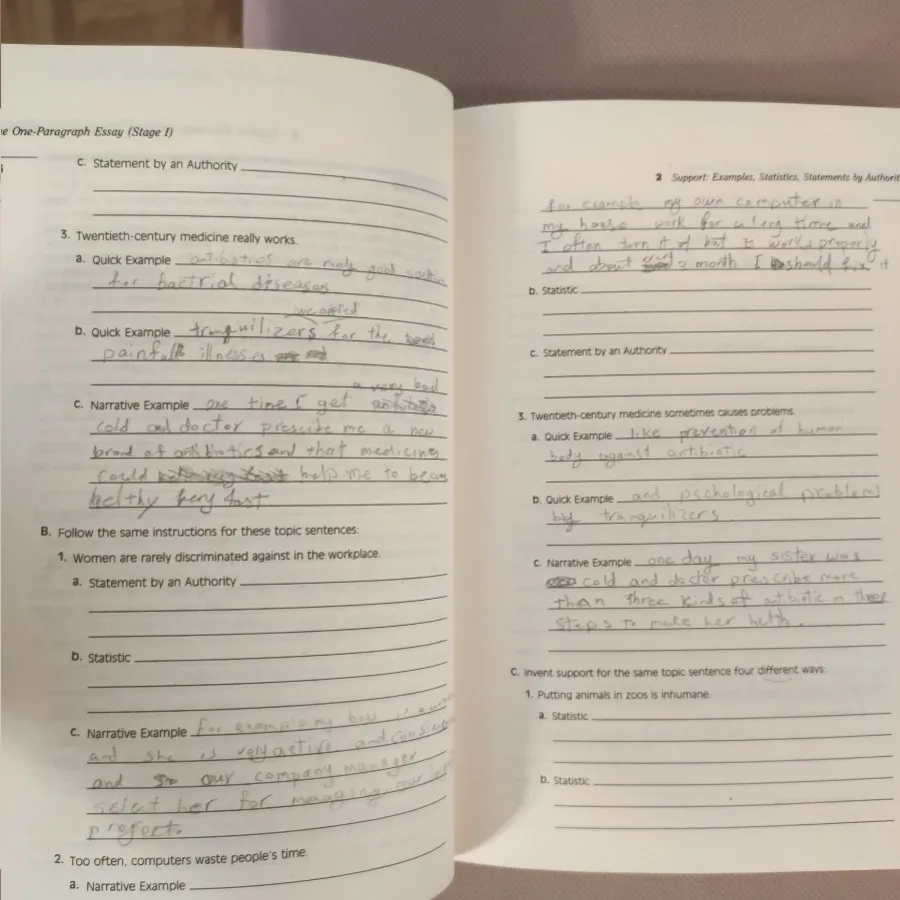 e One-Paragraph Essay (Stage I)
c. Statement by an Authority
3. Twentieth-century medicine really works.
a. Quick Example antibiotics are really good
for bactrial diseases
b. Quick Example tranquilizers for the
painfull illnesses
a very bad
c. Narrative Example one time I get
cold and doctor prescibe me a new
brand of antibiotics and that medicines
could help me to becom
helthy very fast
B. Follow the same instructions for these topic sentences:
1. Women are rarely discriminated against in the workplace.
a. Statement by an Authority
b. Statistic
c. Narrative Example for example my boss is a
and she is very active and
and our company manager
select her for managing our
project.
2. Too often, computers waste people's time.
a. Narrative Example
2 Support: Examples, Statistics, Statements by Authorit
for example my own computer in
my house work for a long time and
I often turn it of but it works properly
and about 2 month I should fix it
b. Statistic
c. Statement by an Authority
3. Twentieth-century medicine sometimes causes problems.
a. Quick Example like prevention of human
body against antibiotic
b. Quick Example and pschological problems
by tranquilizers
c. Narrative Example one day my sister was
cold and doctor prescribe more
than three kinds of antibiotic in
steps to make her helth.
C. Invent support for the same topic sentence four different ways:
1. Putting animals in zoos is inhumane.
a. Statistic
b. Statistic